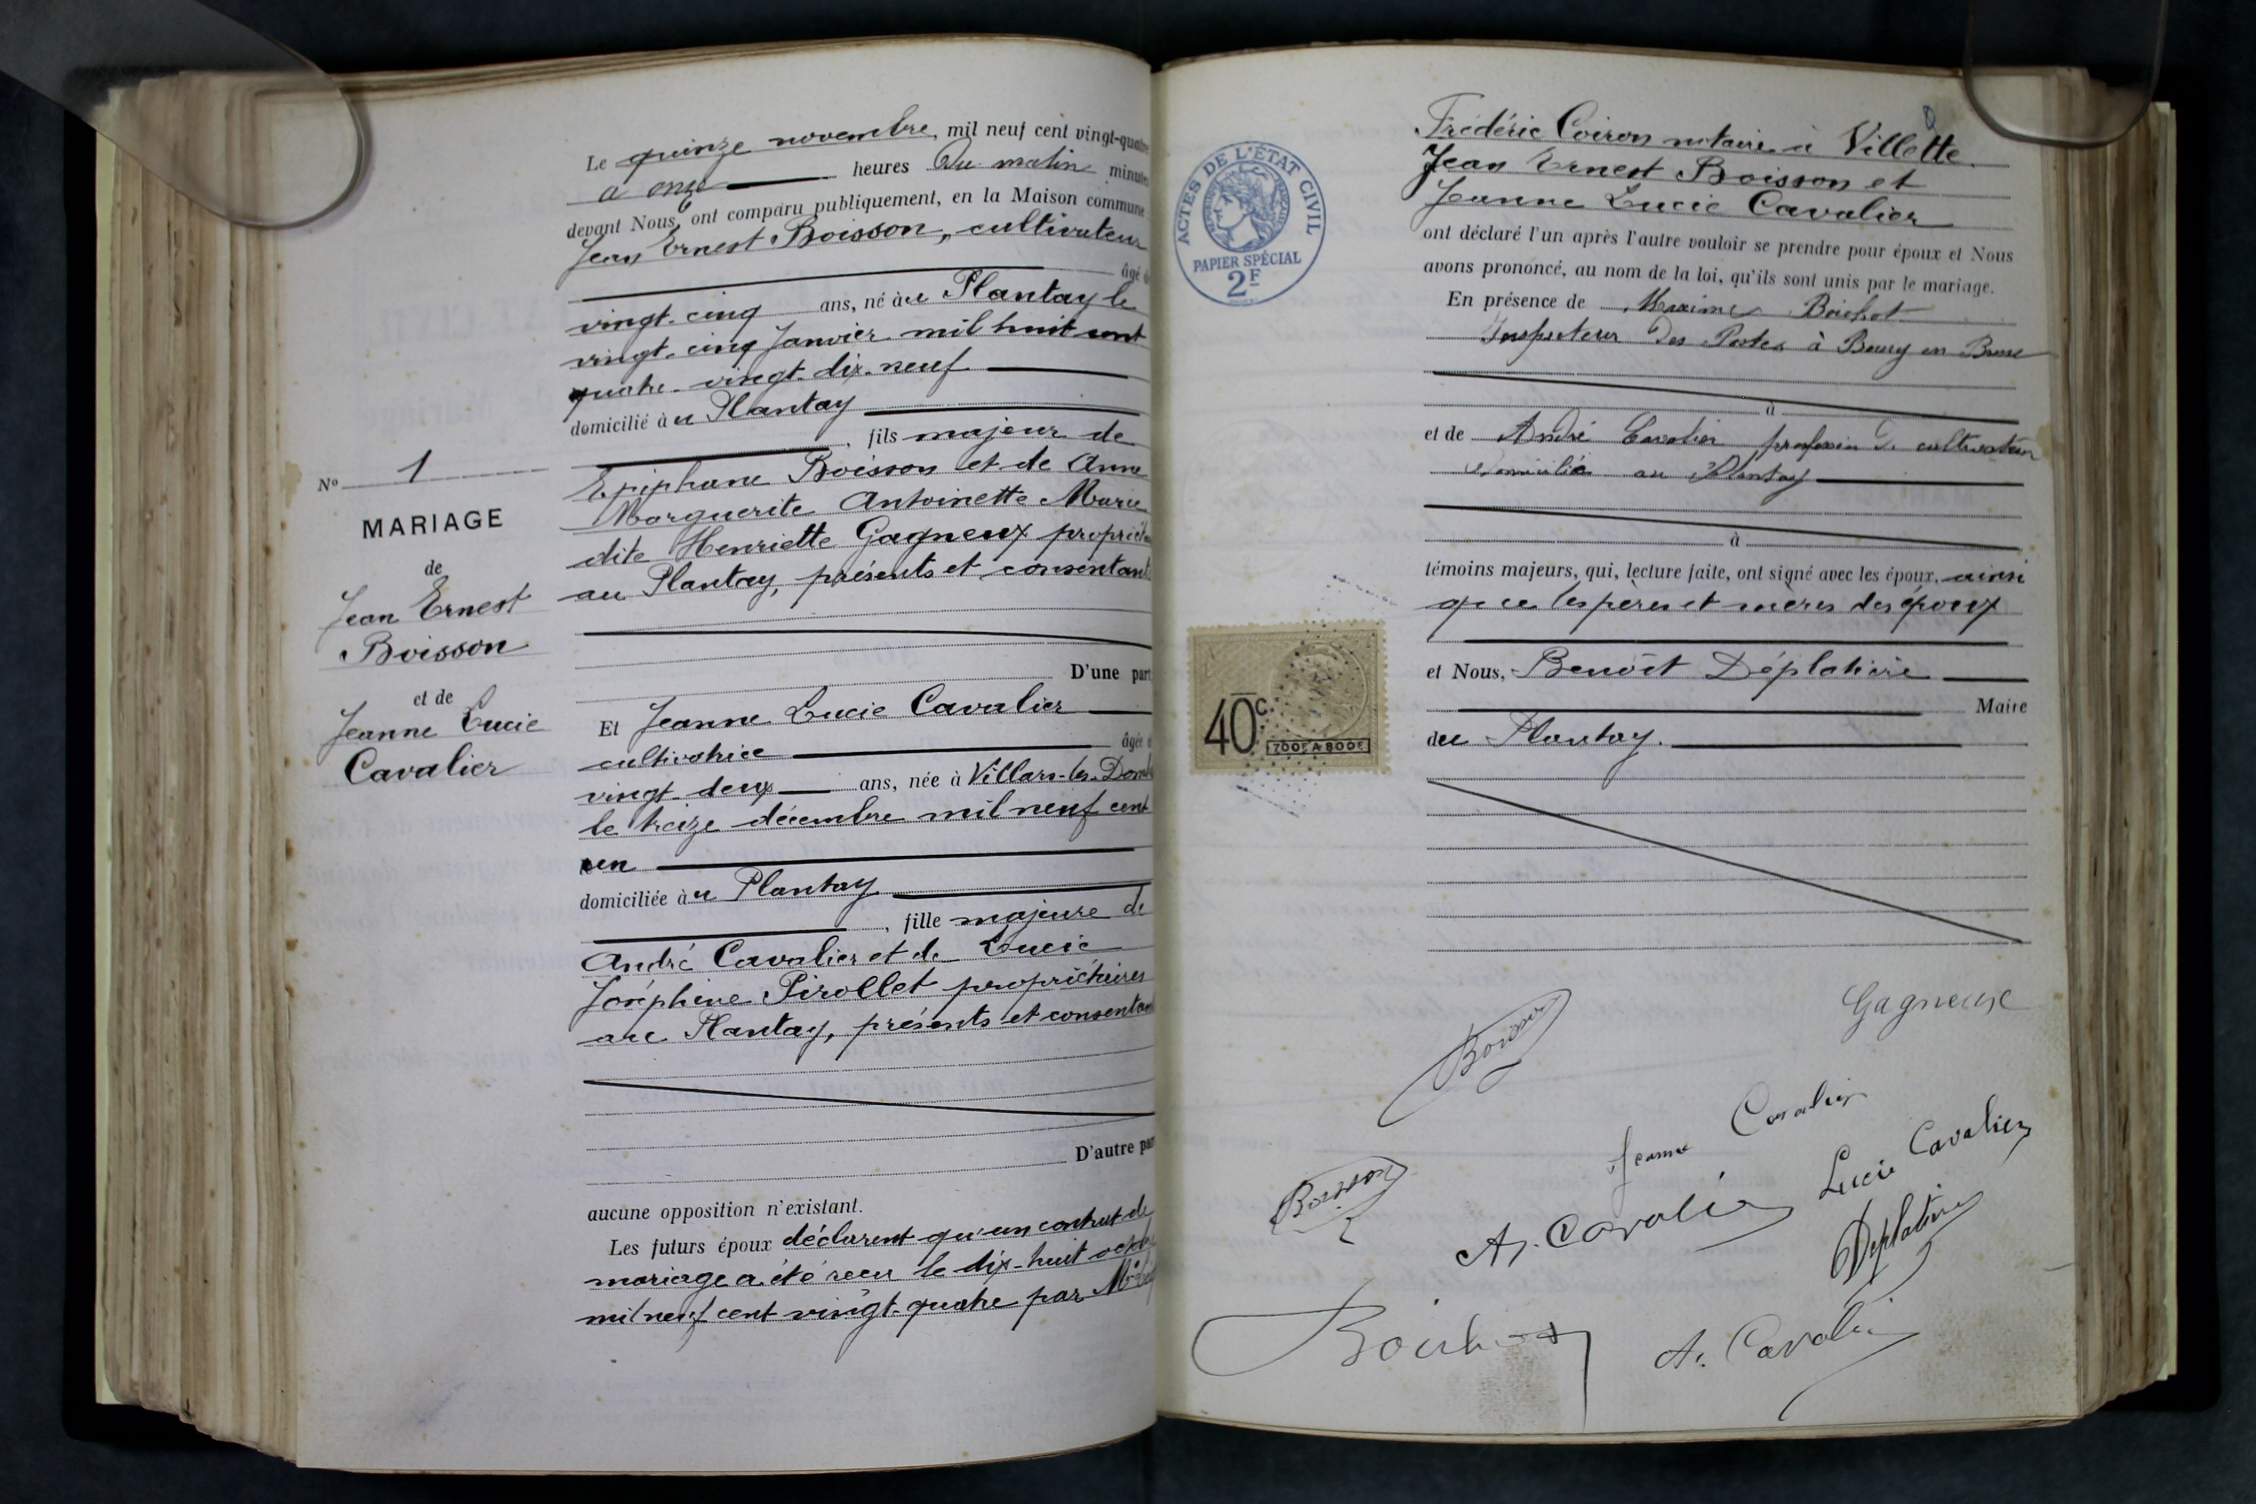 Le quinze novembre, mil neuf cent vingt-quatre
à onze heures Du matin minutes
devant Nous, ont comparu publiquement, en la Maison commune
Jean Ernest Boisson, cultivateur
âgé d
vingt-cinq ans, né àu Plantay le
vingt-cinq Janvier mil huit cent
quatre-vingt-dix-neuf
domicilié àu Plantay
, fils majeur de
Epiphane Boisson et de Anne
Marguerite Antoinette Marie
dite Henriette Gagneux propriét
au Plantay, présents et consentant
D'une part
Nº 1
MARIAGE
de
Jean Ernest
Boisson
et de
Jeanne Lucie
Cavalier
Et Jeanne Lucie Cavalier
cultivatrice âgée d
vingt-deux ans, née à Villars-les-Domb
le treize décembre mil neuf cent
un
domiciliée àu Plantay
, fille majeure de
André Cavalier et de Lucie
Joséphine Pirollet propriétaires
au Plantay, présents et consentant
D'autre par
aucune opposition n'existant.
Les futurs époux déclarent qu'un contrat de
mariage a été recu le dix-huit octob
mil neuf cent vingt-quatre par
Frédéric Coiron notaire à Villette
Jean Ernest Boisson et
Jeanne Lucie Cavalier
ont déclaré l'un après l'autre vouloir se prendre pour époux et Nous
avons prononcé, au nom de la loi, qu'ils sont unis par le mariage.
En présence de Maxime Boichot
Inspecteur Des Postes à Bourg en Bresse
à
et de André Cavalier profession de cultivateur
domicilié au Plantay
à
témoins majeurs, qui, lecture faite, ont signé avec les époux, ainsi
que les pères et mères des époux
et Nous, Benoît Déplatière
Maire
du Plantay.
ACTES DE L'ÉTAT CIVIL
PAPIER SPÉCIAL
2F
40c.
700F A 800F
Boisson
Gagneux
Jeanne Cavalier
Boisson
A. Cavalier
Lucie Cavalier
Déplatière
Boichot
A. Cavalier